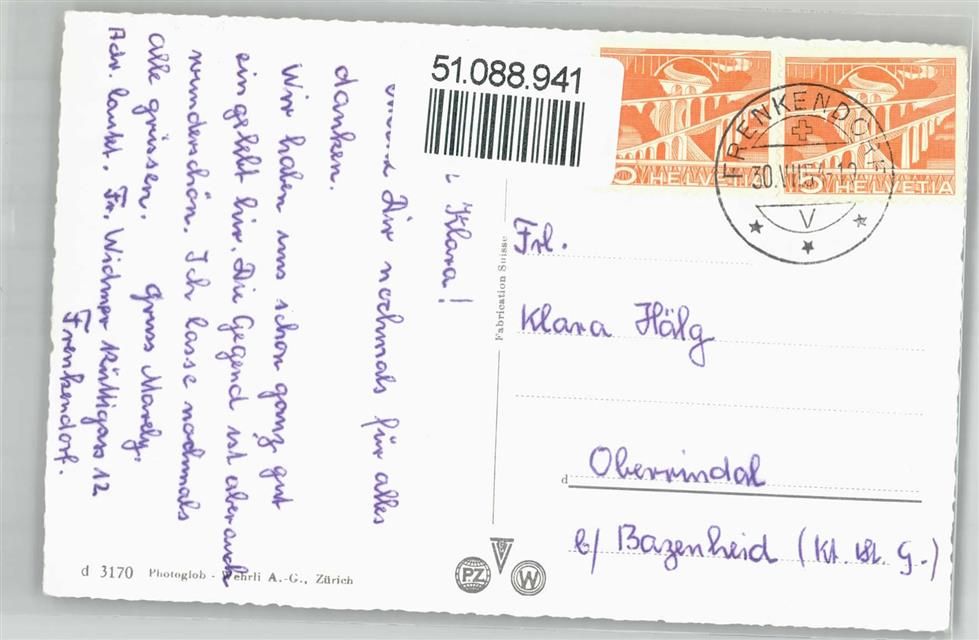 51.088.941
Klara!
Dir nochmals für alles
danken.
Wir haben uns schon ganz gut
eingelebt hir. Die Gegend ist aber auch
wunderschön. Ich lasse nochmals
alle grüssen. gruss Marely.
Adr. lautet. Fr. Widmer 12
Frenkendorf.
HELVETIA
5 HELVETIA
FRENKENDORF
30.
V
Fabrication Suisse
Frl.
Klara Hälg
d Oberrindal
b/ Bazenheid (Kt. St. G.)
d 3170 Photoglob - Wehrli A.-G., Zürich
PZ
V
W